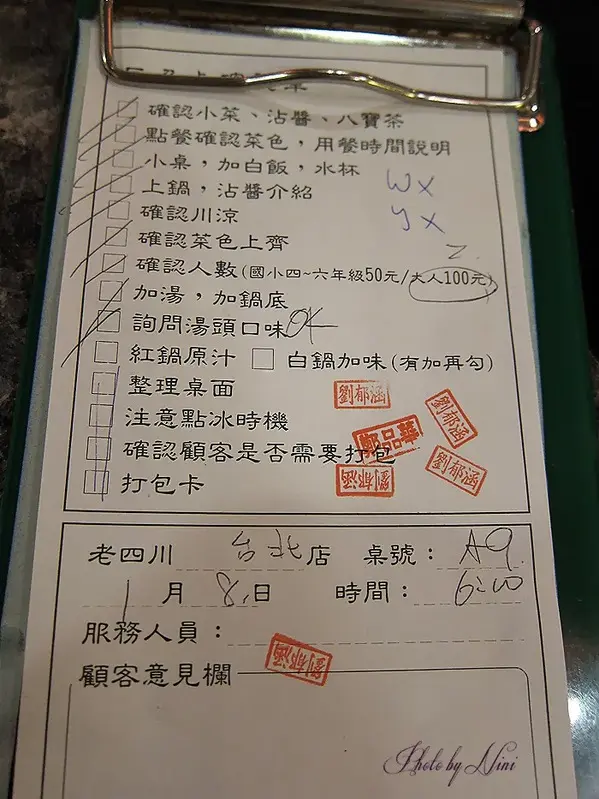 確認小菜、沾醬、八寶茶
點餐確認菜色，用餐時間說明
小桌，加白飯，水杯
上鍋，沾醬介紹 W X
確認川涼 y X
確認菜色上齊
2.
確認人數(國小四~六年級50元/大人100元)
加湯，加鍋底
詢問湯頭口味 OK
紅鍋原汁 白鍋加味(有加再勾)
整理桌面 劉郁涵 劉郁涵
注意點冰時機
確認顧客是否需要打包 鄭品華 劉郁涵
打包卡 劉郁涵
老四川 台北店 桌號：A9
1月8日 時間：6:00
服務人員：
劉郁涵
顧客意見欄
Photo by Nini